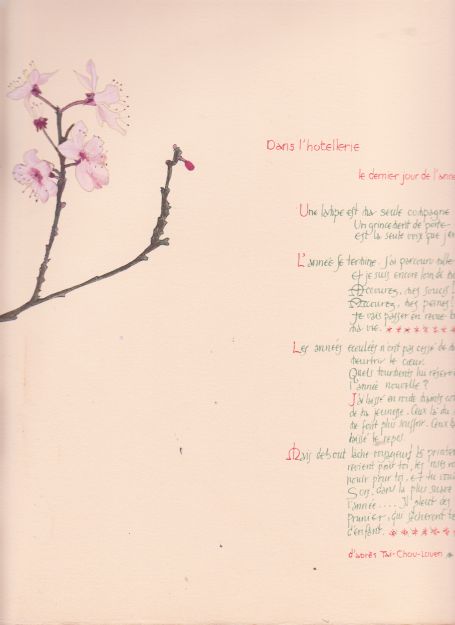 Dans l'hotellerie
le dernier jour de l'anné
Une lampe est ma seule compagne
Un grincement de porte
est la seule voix que j'en
L'année se termine. J'ai parcouru mille
Et je suis encore loin de
Accourez, mes soucis!
Accourez, mes peines!
Je vais passer en revue
ma vie.
Les années écoulées n'ont pas cessé de
meurtrir le cœur.
Quels tourments me réserve
l'année nouvelle?
J'ai laissé en route
de ma jeunesse. Ceux là
me font plus souffrir. Ceux
le repos.
Mais debout lâche voyageur! Le printemps
revient pour toi, les roses
pour toi, et tu
Sors, dans la plus suave
l'année.... Il pleut des
prunier, qui sèchent
d'enfant.
d'après Tai-Chou-Louen